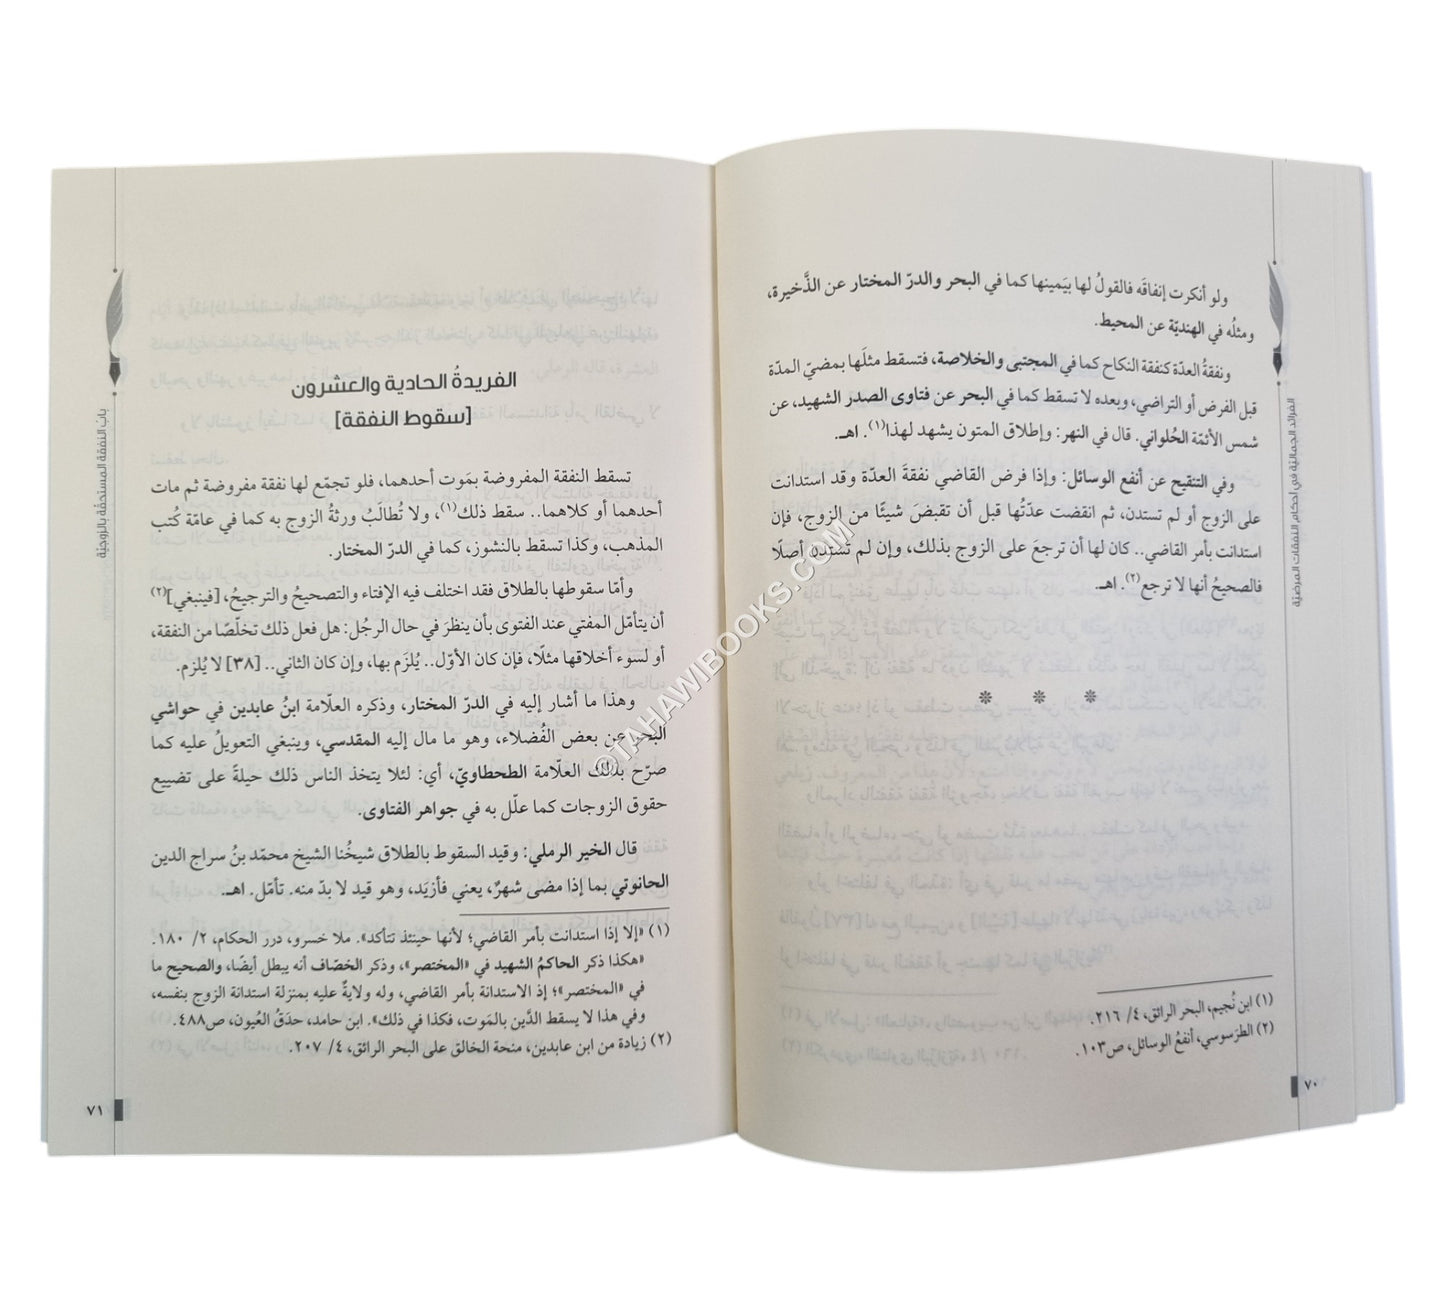 ولو أنكرت إنفاقَه فالقولُ لها بيَمينها كما في البحر والدرّ المختار عن الذَّخيرة،
ومثلُه في الهنديّة عن المحيط.
ونفقةُ العدّة كنفقة النكاح كما في المجتبى والخلاصة، فتسقط مثلَها بمضيّ المدّة
قبل الفرض أو التراضي، وبعده لا تسقط كما في البحر عن فتاوى الصدر الشهيد، عن
شمس الأئمّة الحُلواني. قال في النهر: وإطلاق المتون يشهد لهذا(١). اهـ.
وفي التنقيح عن أنفع الوسائل: وإذا فرض القاضي نفقةَ العدّة وقد استدانت
على الزوج أو لم تستدن، ثم انقضت عدّتُها قبل أن تقبضَ شيئًا من الزوج، فإن
استدانت بأمر القاضي.. كان لها أن ترجعَ على الزوج بذلك، وإن لم تستدن أصلًا
فالصحيحُ أنها لا ترجع(٢). اهـ.
(١) ابن نُجيم، البحر الرائق، ٤/ ٢١٦.
(٢) الطرَسوسي، أنفعُ الوسائل، ص١٠٣.
الفرائد الجماليّة في أحكام النفقات المرضيّة
٧٠
الفريدةُ الحادية والعشرون
[سقوط النفقة]
تسقط النفقة المفروضة بمَوت أحدهما، فلو تجمّع لها نفقة مفروضة ثم مات
أحدهما أو كلاهما.. سقط ذلك(١)، ولا تُطالَبُ ورثةُ الزوج به كما في عامّة كُتب
المذهب، وكذا تسقط بالنشوز، كما في الدرّ المختار.
وأمّا سقوطها بالطلاق فقد اختلف فيه الإفتاء والتصحيحُ والترجيحُ، [فينبغي](٢)
أن يتأمّل المفتي عند الفتوى بأن ينظرَ في حال الرجُل: هل فعل ذلك تخلّصًا من النفقة،
أو لسوء أخلاقها مثلًا، فإن كان الأوّل.. يُلزَم بها، وإن كان الثاني.. [٣٨] لا يُلزم.
وهذا ما أشار إليه في الدرّ المختار، وذكره العلّامة ابنُ عابدين في حواشي
البحر عن بعض الفُضلاء، وهو ما مال إليه المقدسي، وينبغي التعويلُ عليه كما
صرّح بذلك العلّامة الطحطاويّ، أي: لئلا يتخذ الناس ذلك حيلةً على تضييع
حقوق الزوجات كما علّل به في جواهر الفتاوى.
قال الخير الرملي: وقيد السقوط بالطلاق شيخُنا الشيخ محمّد بنُ سراج الدين
الحانوتي بما إذا مضى شهرٌ، يعني فأزيَد، وهو قيد لا بدّ منه. تأمّل. اهـ.
(١) «إلا إذا استدانت بأمر القاضي؛ لأنها حينئذ تتأكد». ملا خسرو، درر الحكام، ٢/ ١٨٠.
«هكذا ذكر الحاكمُ الشهيد في «المختصر»، وذكر الخصّاف أنه يبطل أيضًا، والصحيح ما
في «المختصر»؛ إذ الاستدانة بأمر القاضي، وله ولايةٌ عليه بمنزلة استدانة الزوج بنفسه،
وفي هذا لا يسقط الدَّين بالمَوت، فكذا في ذلك». ابن حامد، حدَقُ العُيون، ص٤٨٨.
(٢) زيادة من ابن عابدين، منحة الخالق على البحر الرائق، ٤/ ٢٠٧.
باب النفقة المستحقّة بالزوجيّة
٧١
©TAHAWIBOOKS.COM